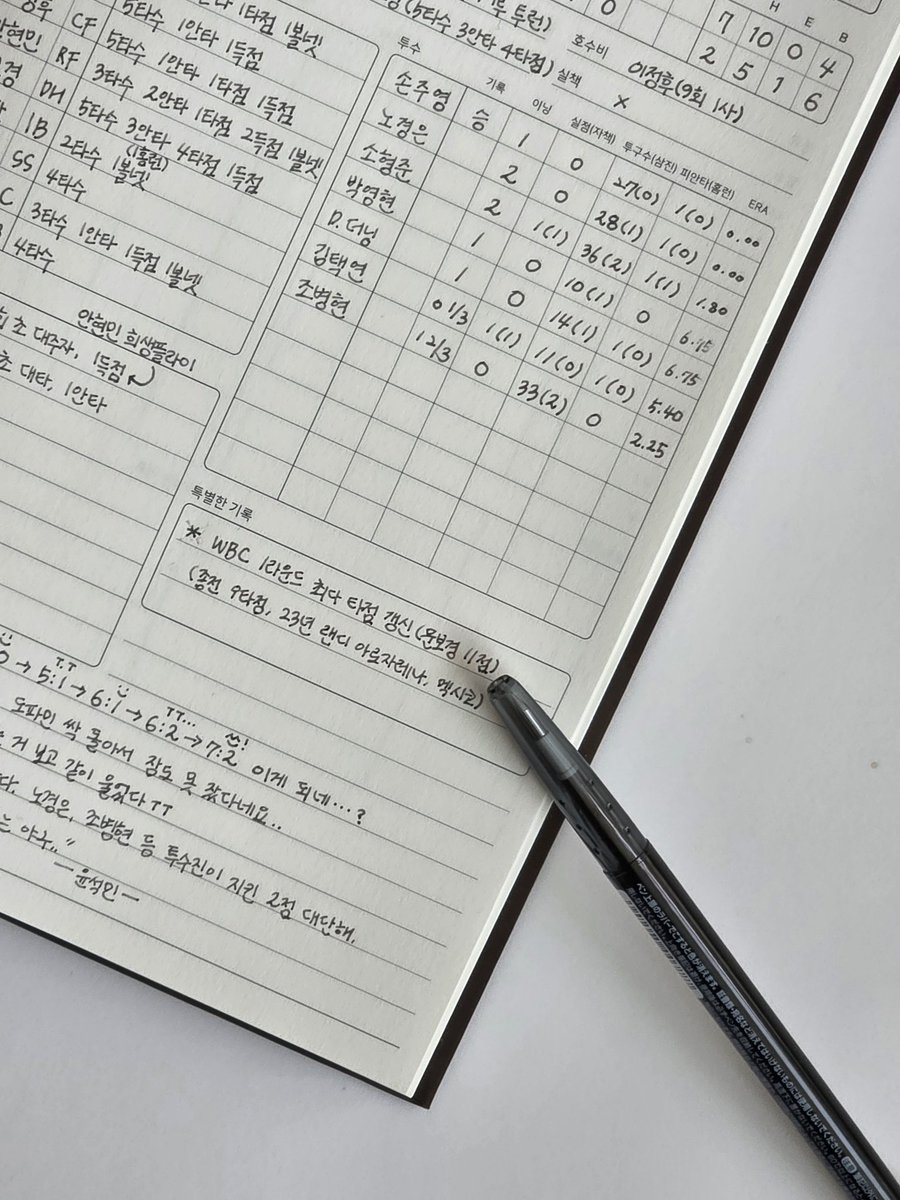 CF 5타수 1안타 1타점 1볼넷
RF 5타수 1안타 1득점
DH 3타수 1안타 1타점 1득점
1B 5타수 2안타 1타점 2득점 1볼넷
SS 2타수 3안타 4타점 1득점
(1홈런)
1볼넷
C 4타수
3타수 1안타 1득점 1볼넷
4타수
안현민 희생플라이
초 대주자, 1득점
초 대타, 1안타
(5타수 3안타 4타점)
H E B
7 10 0 4
2 5 1 6
호수비 이정후(9회 1사)
실책 ×
투수
기록 이닝 실점(자책) 투구수(삼진) 피안타(홈런) ERA
손주영 승 1 0 27(0) 1(0) 0.00
노경은 2 0 28(1) 1(0) 0.00
소형준 2 1(1) 36(2) 1(1) 1.80
박영현 1 0 10(1) 0 6.75
D.더닝 1 0 14(1) 1(0) 6.75
김택연 0 1/3 1(1) 11(0) 1(0) 5.40
조병현 1 2/3 0 33(2) 0 2.25
특별한 기록
* WBC 1라운드 최다 타점 갱신(문보경 11점)
(종전 9타점, 23년 랜디 아로자레나, 멕시코)
0 → 5:1 → 6:1 → 6:2 → 7:2 이게 되네...?
도파민 싹 돌아서 잠도 못 잤다네요..
거 보고 같이 울었다 TT
노경은, 조병현 등 투수진이 지킨 2점 대단해.
는 야구.."
ー윤석민ー